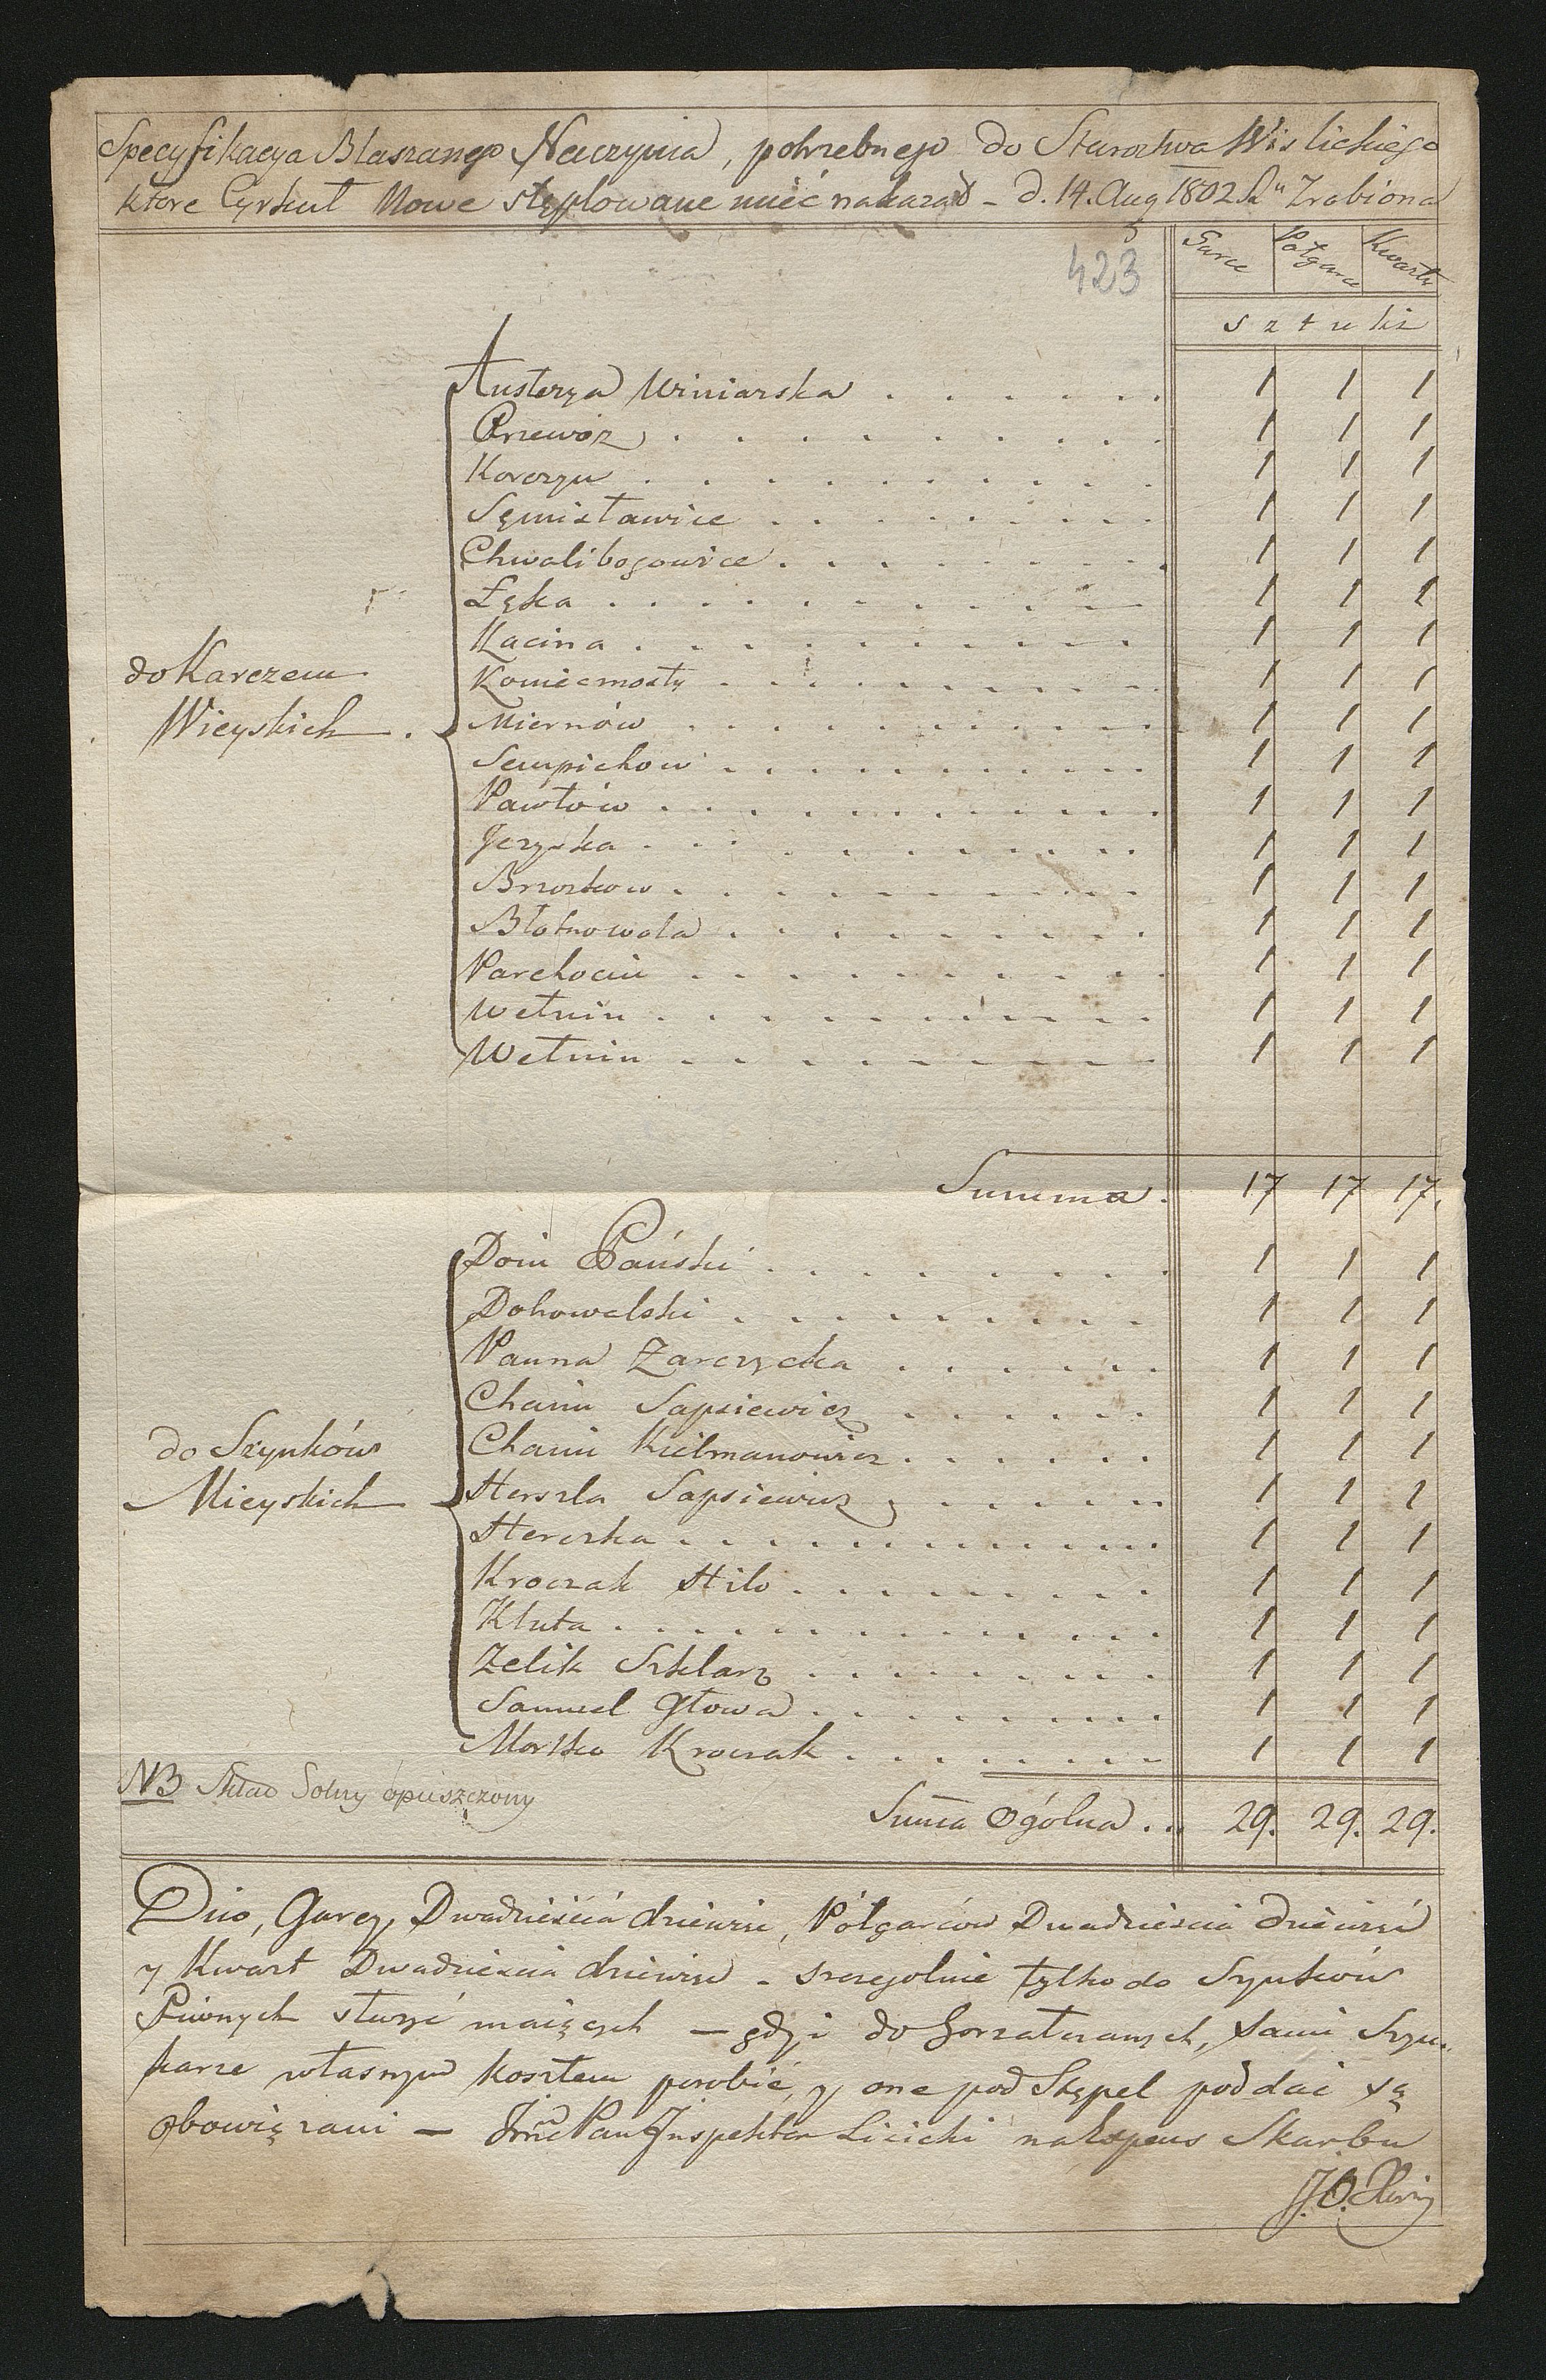 Specyfikacya Blaszanego Naczynia, potrzebnego do Starostwa Wislickiego
ktore Cyrkuł Nowe stęplowane mieć nakazał - d. 14. Aug 1802 Zrobiona
423
Garce Połgarce Kwarty
sztuki
Austerya Winiarska . . . . . . 1 1 1
Przewóz . . . . . . 1 1 1
Korczyn . . . . . . 1 1 1
Sęmisławice . . . . . . 1 1 1
Chwalibogowice . . . . . . 1 1 1
Łęka . . . . . . 1 1 1
Kacina . . . . . . 1 1 1
do Karczem
Koniecmosty . . . . . . 1 1 1
Wieyskich .
Miernów . . . . . . 1 1 1
Sempichow . . . . . . 1 1 1
Pawłów . . . . . . 1 1 1
Jezyska . . . . . . 1 1 1
Brzostkow . . . . . . 1 1 1
Błotnowola . . . . . . 1 1 1
Parchocin . . . . . . 1 1 1
Wełnin . . . . . . 1 1 1
Wełnin . . . . . . 1 1 1
Summa . 17 17 17.
Dom Pański . . . . . . 1 1 1
Dohowalski . . . . . . 1 1 1
Panna Zarczycka . . . . . . 1 1 1
Chaim Sapsiewicz . . . . . . 1 1 1
do Szynków
Chaim Kielmanowicz . . . . . . 1 1 1
Mieyskich
Herszla Sapsiewicz . . . . . . 1 1 1
Herszka . . . . . . 1 1 1
Kroczak Hilo . . . . . . 1 1 1
Kluta . . . . . . 1 1 1
Zelik Szklarz . . . . . . 1 1 1
Samuel Głowa . . . . . . 1 1 1
Mortko Kroczak . . . . . . 1 1 1
NB Skład Solny opuszczony
Suma Ogólna . . . 29. 29. 29.
Dico, Garcy, Dwadzieścia dziewięć, Półgarców Dwadziescia dziewięć
y Kwart Dwadziescia dziewięć - szczegolnie tylko do Szynków
Piwnych służyć maiących — gdyż do Gorzałczanych, sami Szyn-
karze własnym kosztem porobić, y one pod Stępel poddać są
obowiązani — Pan Inspektor Licicki na Expens Skarbu